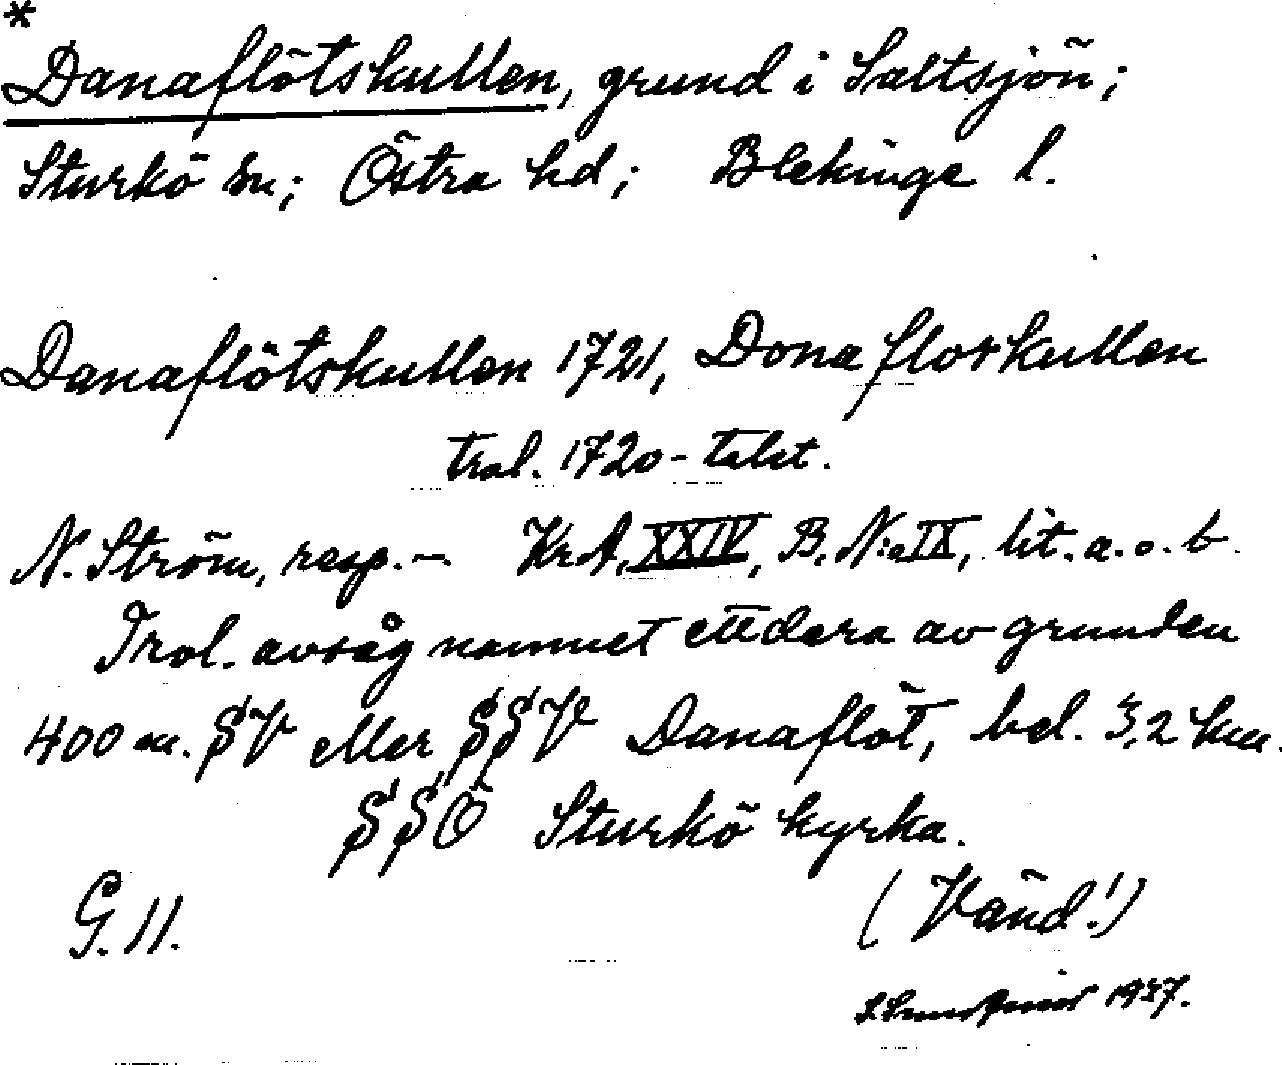 *
Danaflötskullen, grund i Saltsjön;
Sturkö sn; Östra hd; Blekinge l.
Danaflötskullen 1721, Donaflotkullen
trol. 1720-talet.
N. Ström, resp. – KrA, XXIV, B. N:o IX, lit. a. o. b.
Trol. avsåg namnet ettdera av grunden
400 m. SV eller SSV Danaflöt, bel. 3,2 km.
SSO Sturkö kyrka.
G. 11. (Vänd!)
1937.